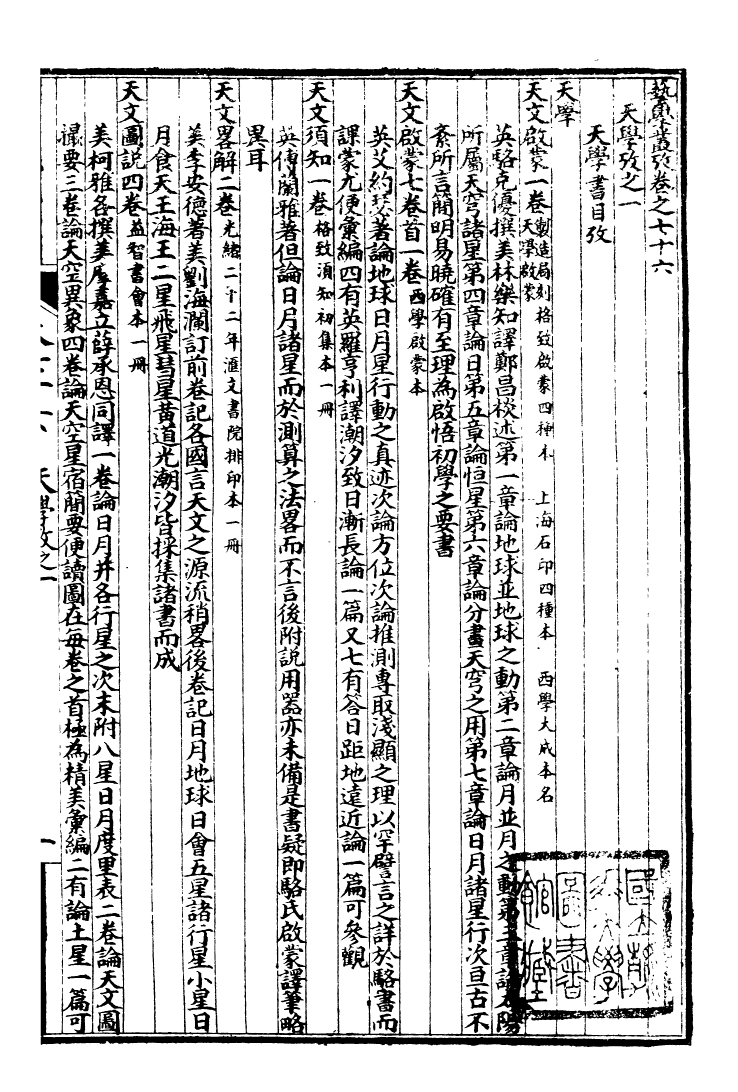 藝學彙攷卷之七十六
天學攷之一
天學書目攷
天學
天文啟蒙一卷 製造局刻格致啟蒙四種本 上海石印四種本 西學大成本名天學啟蒙
英駱克優撰美林樂知譯鄭昌棪述第一章論地球並地球之動第二章論月並月之動第三章論太陽
所屬天穹諸星第四章論日第五章論恒星第六章論分畫天穹之用第七章論日月諸星行次亘古不
紊所言簡明易曉確有至理為啟悟初學之要書
天文啟蒙七卷首一卷 西學啟蒙本
英艾約瑟著論地球日月星行動之真迹次論方位次論推測專取淺顯之理以罕譬言之詳於駱書而
課蒙尤便彙編四有英羅亨利譯潮汐致日漸長論一篇又七有答日距地遠近論一篇可參觀
天文須知一卷 格致須知初集本一冊
英傅蘭雅著但論日月諸星而於測算之法畧而不言後附說用器亦未備是書疑即駱氏啟蒙譯筆略
異耳
天文畧解二卷 光緒二十二年滙文書院排印本一冊
美李安德著美劉海瀾訂前卷記各國言天文之源流稍畧後卷記日月地球日會五星諸行星小星日
月食天王海王二星飛星彗星黃道光潮汐皆採集諸書而成
天文圖說四卷 益智書會本一冊
美柯雅各撰美摩嘉立薛承恩同譯一卷論日月并各行星之次末附八星日月度里表二卷論天文圖
撮要三卷論天空異象四卷論天空星宿簡要便讀圖在每卷之首極為精美彙編二有論土星一篇可
天學攷之一
一
國立
大學
圖書
館藏